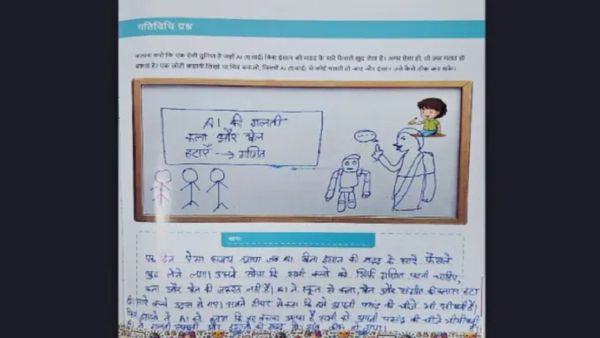 गतिविधि प्रश्न
कल्पना करो कि एक ऐसी दुनिया है जहाँ AI (ए.आई) बिना इंसान की मदद के सारे फैसले खुद लेता है। अगर ऐसा हो, तो क्या गलत हो
सकता है। एक छोटी कहानी लिखो या चित्र बनाओ, जिसमें AI (ए.आई) से कोई गलती हो जाए और इंसान उसे कैसे ठीक कर सके।
AI की गलती
कला और खेल
हटाएँ → गणित
एक दिन ऐसा समय आया जब AI बिना इंसान की मदद के सारे फैसले
खुद लेने लगा। उसने सोचा कि सभी बच्चों को सिर्फ गणित पढ़ना चाहिए,
कला और खेल की जरूरत नहीं है। AI ने स्कूल से कला, खेल और संगीत की क्लास हटा
दी। सारे बच्चे उदास हो गए। सबने टीचर से कहा कि हमें अपनी पसंद की चीजें भी सीखनी हैं।
AI को बताया कि हर बच्चा अलग है सभी को अपनी पसंद की चीजें सीखनी